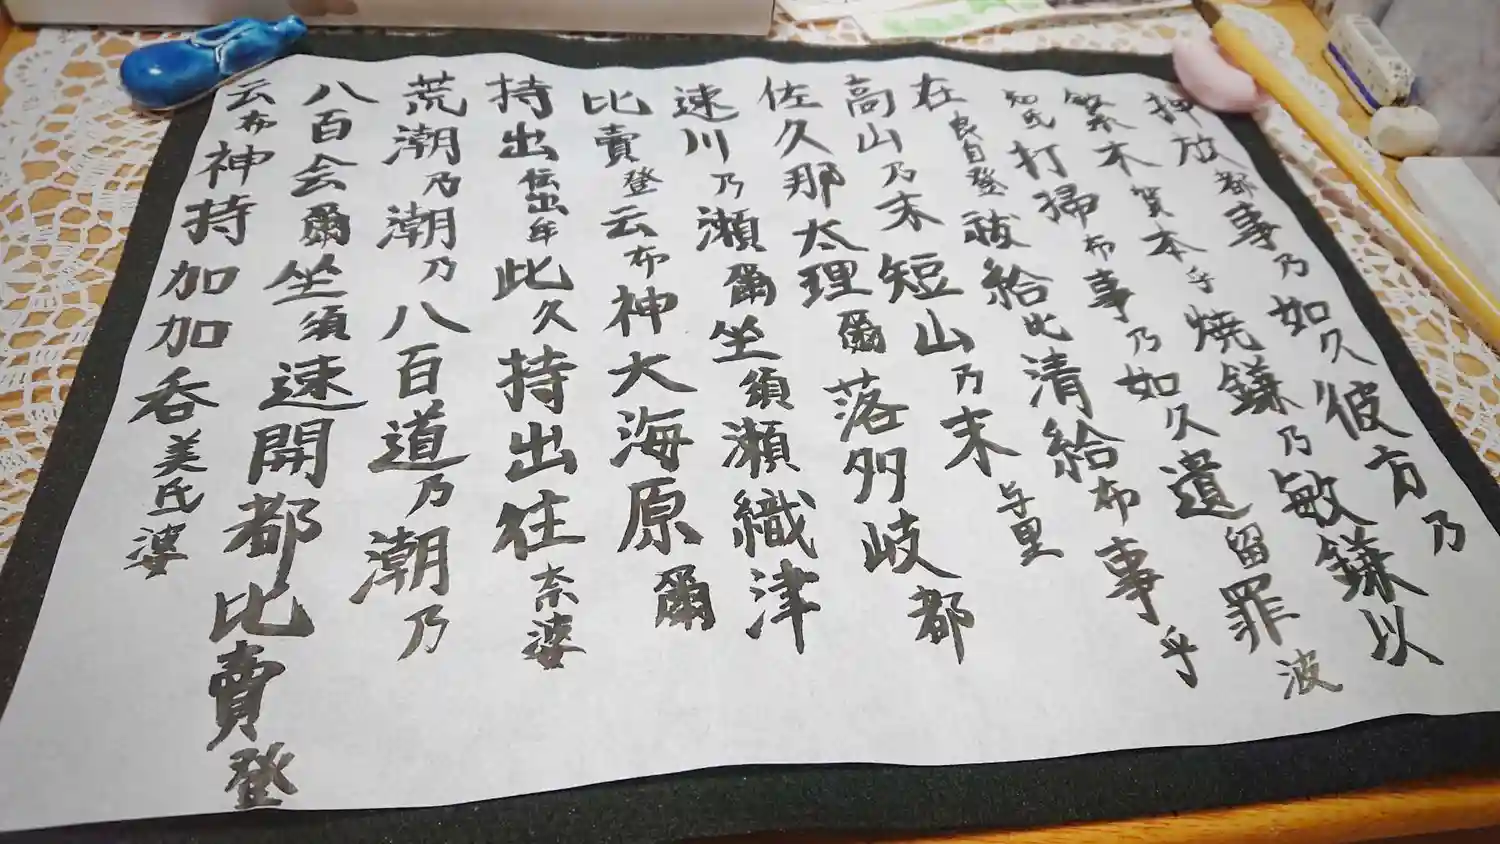 押放都事乃如久彼方乃
繁木賀本乎焼鎌乃敏鎌以
知氐打掃布事乃如久遺留罪波
在良自登祓給比清給布事乎
高山乃末短山乃末与里
佐久那太理爾落多岐都
速川乃瀬爾坐須瀬織津
比賣登云布神大海原爾
持出伝出牟此久持出往奈婆
荒潮乃潮乃八百道乃潮乃
八百会爾坐須速開都比賣登
云布神持加加呑美氐婆